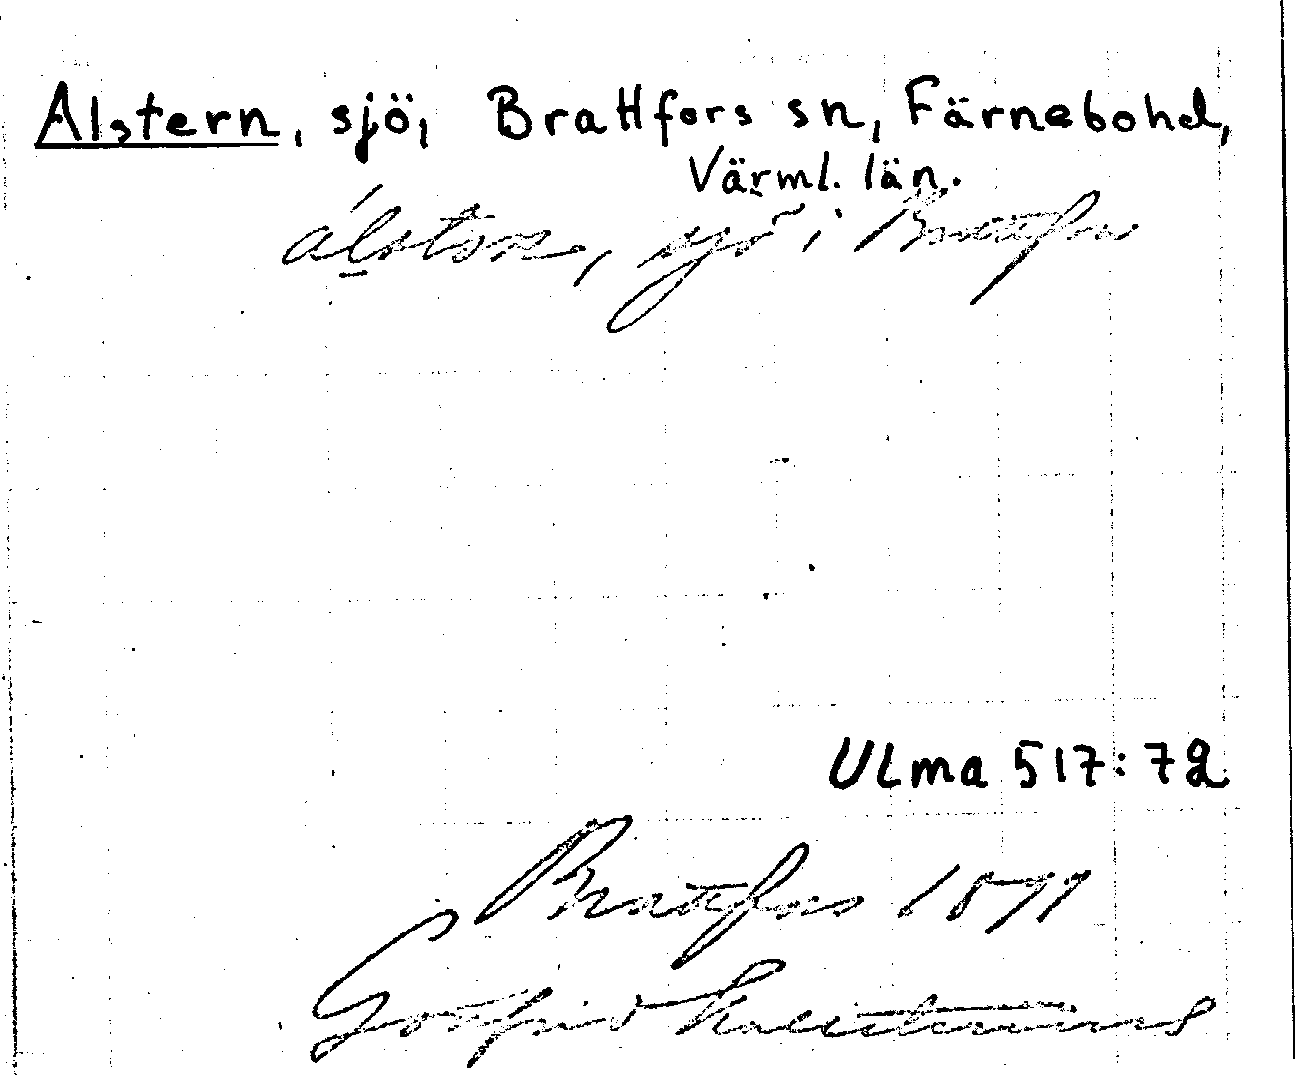 Alstern, sjö, Brattfors sn, Färnebohd,
Värml. län.
álstɘn, sjö i Brattfors
ULma 517:72
Brattfors 18
Gottfrid Kallstenius